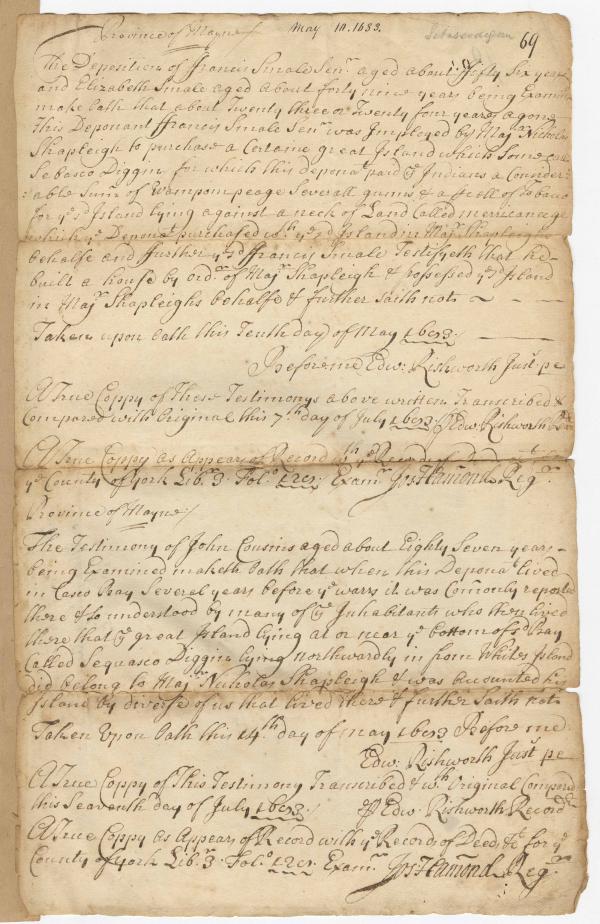 Province of Mayne May 10. 1683. Sebascodegan 69
The Deposition of ffrancis Smale Senr aged about ffifty Six years
and Elizabeth Smale aged about forty nine years being Examin
make Oath that about Twenty three or Twenty four years agone
This Deponant ffrancis Smale Senr was Imployed by Majr Nicholas
Shapleigh to purchase a Certaine great Island which Some call
Sebasco Diggin for which this deponat paid ye Indians a Consider
able Sum of Wampompeage Severall guns & a ffoll of Tobaco
for ye sd Island lying against a neck of Land Called merriconege
which ye Deponat purchased wth ye sd Island in Majr Shapleighs
behalfe and further ye sd ffrancis Smale Testifyeth that he
built a house by ordr of Majr Shapleigh & possessed ye sd Island
in Majr Shapleighs behalfe & further Saith not
Taken upon Oath this Tenth day of May 1683:
Before me Edw: Rishworth Just: pe
A True Coppy of These Testimonys above written Transcribed &
Compared with Original this 7th day of July 1683 p Edw: Rishworth
A True Coppy as Appears of Record wth ye Records of
ye County of York Libr 3. Folo Examr Jos Hamond Regr
Province of Mayne
The Testimony of John Cousins aged about Eighty Seven years
being Examined maketh Oath that when this Deponat Lived
in Casco Bay Several years before ye wars it was Comonly reported
there & So understood by many of ye Inhabitants who then lived
there that ye great Island lying at or near ye bottom of sd Bay
Called Sequasco Diggin lying northwardly in from Whites Island
did belong to Majr Nicholas Shapleigh & was accounted his
Island by diverse of us that lived there & further Saith not
Taken Upon Oath this 14th day of May 1683 Before me
Edw: Rishworth Just pe
A True Coppy of This Testimony Transcribed & wth Original Compared
this Seaventh day of July 1683 p Edw Rishworth Record
A True Coppy as Appears of Record with ye Records of Deeds &c for ye
County of york Libr 3. Folo Examr Jos Hamond Regr